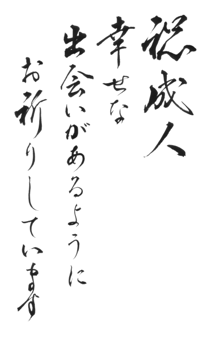 祝成人
幸せな
出会いがあるように
お祈りしています